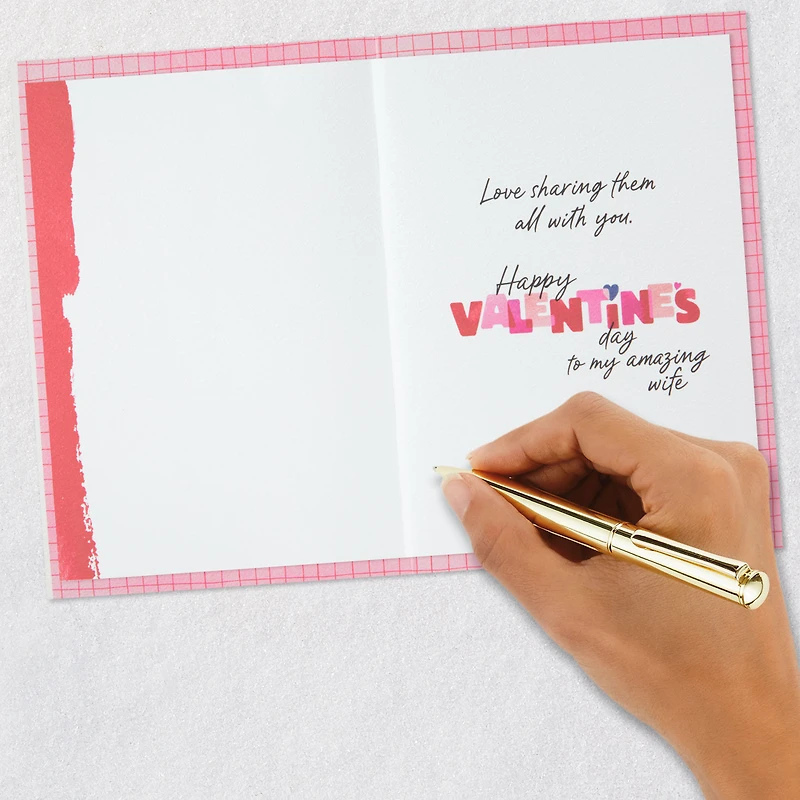 Love sharing them
all with you.
Happy
VALENTINE'S
day
to my amazing
wife